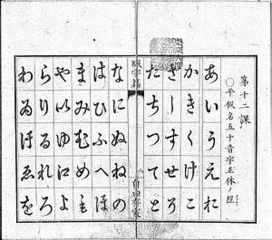 第十二課
あいうえお
かきくけこ
さしすせそ
たちつてと
なにぬねの
はひふへほ
まみむめも
やいゆ江よ
らりるれろ
わゐうゑを